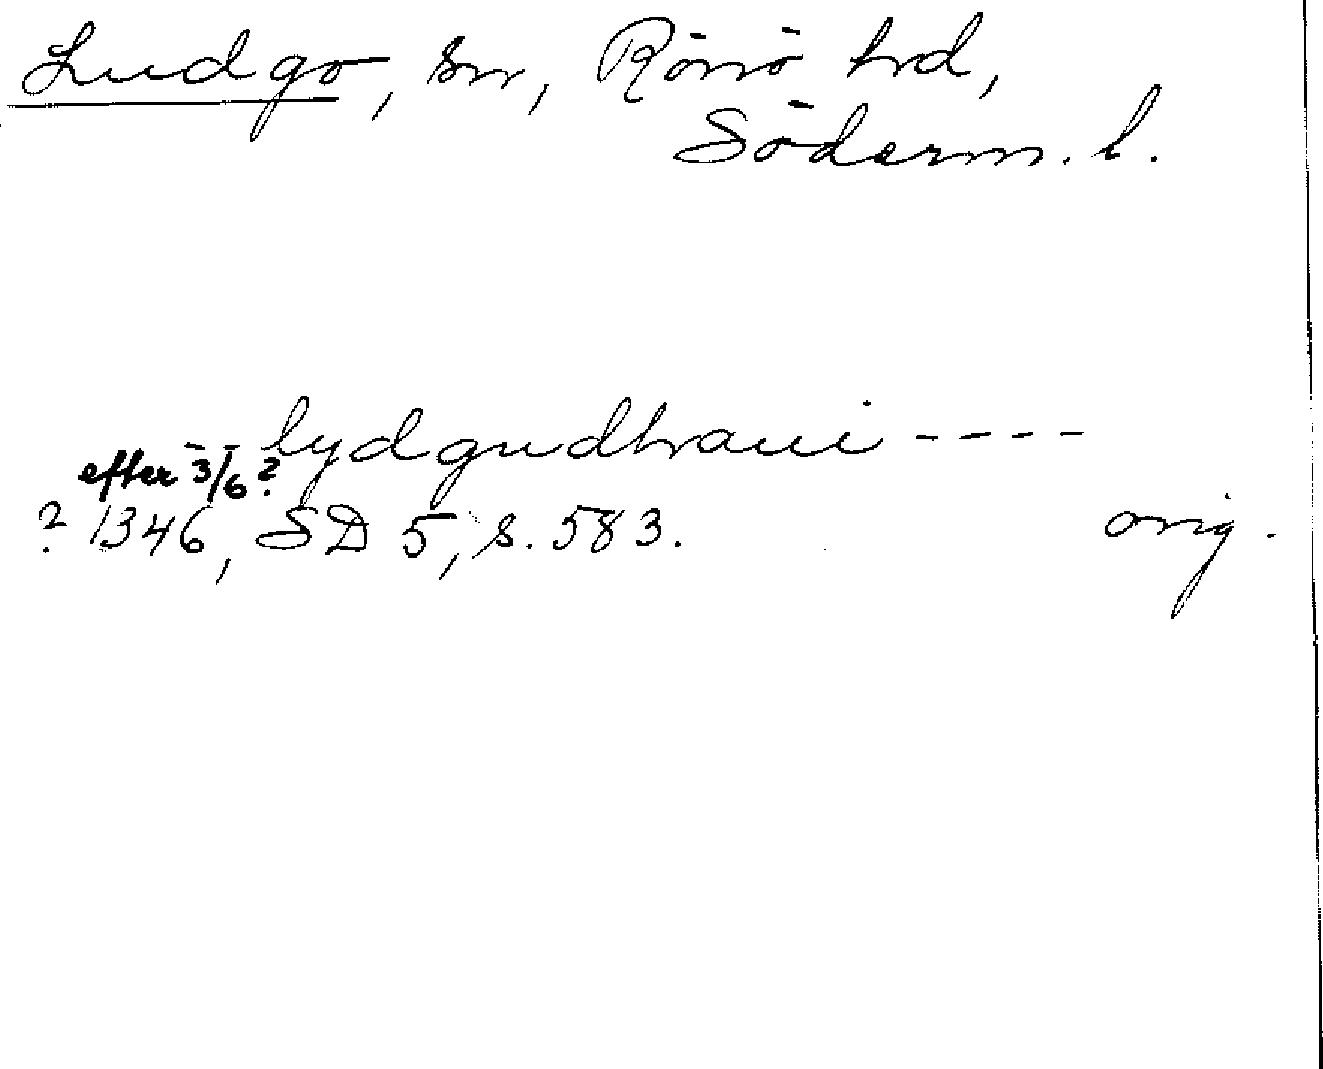 Ludgo, sn, Rönö hd,
Söderm. l.
-- lydgudhraui ----
efter 3/6 ?
? 1346, SD 5, s. 583. orig.